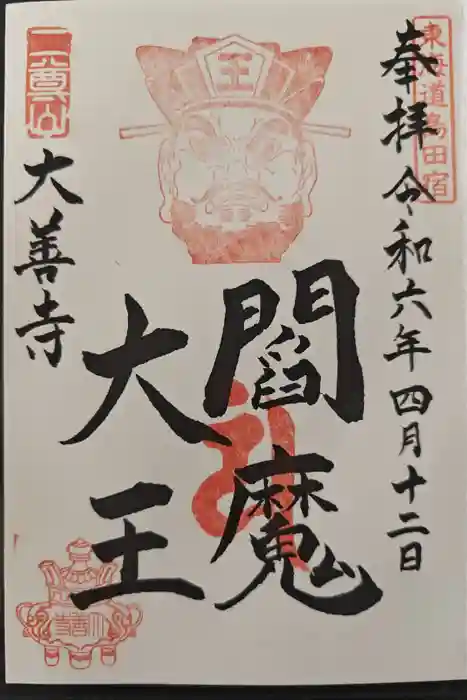 東海道島田宿
奉拝 令和六年四月十二日
王
閻魔
大王
二尊山
大善寺
大善寺